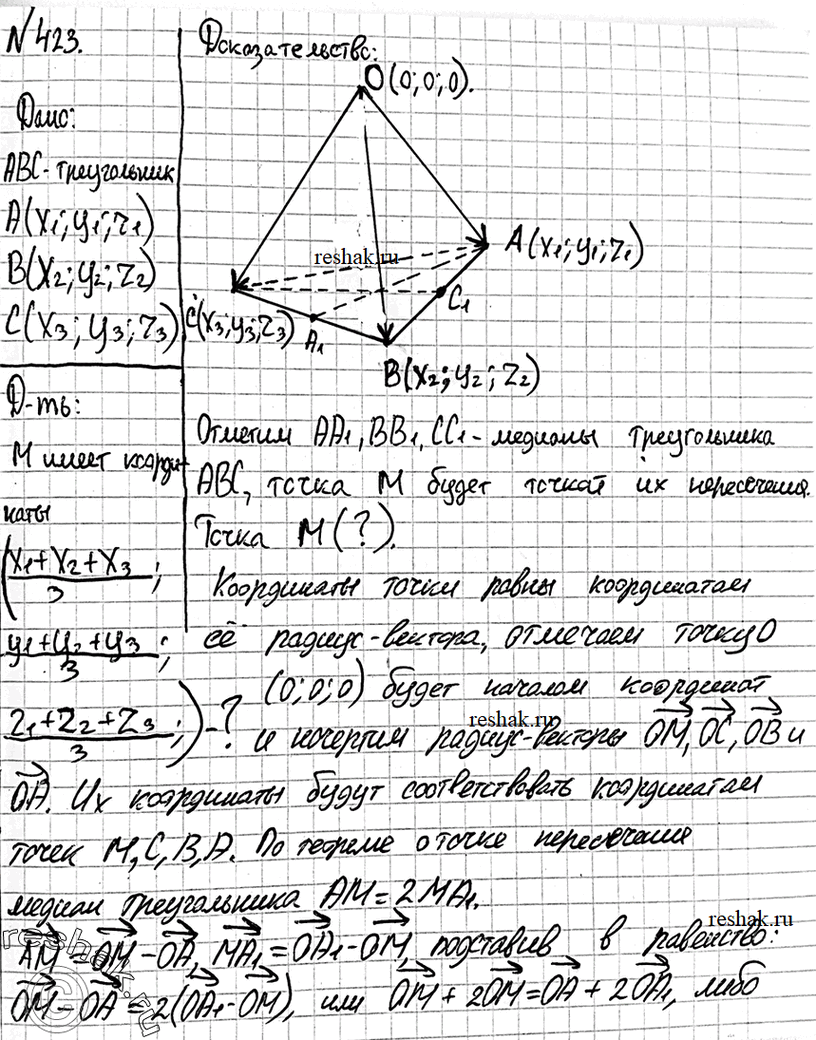 №423.
Дано:
ABC-треугольник
A(x₁; y₁; z₁)
B(x₂; y₂; z₂)
C(x₃; y₃; z₃)
Д-ть:
M имеет коорди-
наты
(x₁+x₂+x₃/3;
y₁+y₂+y₃/3;
z₁+z₂+z₃/3;)-?
Доказательство:
O(0;0;0).
reshak.ru
A(x₁; y₁; z₁)
C(x₃; y₃; z₃)
A₁
C₁
B(x₂; y₂; z₂)
Отметим AA₁, BB₁, CC₁-медианы треугольника
ABC, точка M будет точкой их пересечения.
Точка M(?).
Координаты точки равны координатам
её радиус-вектора, отмечаем точку O
(0;0;0) будет началом координат
reshak.ru
и начертим радиус-векторы OM, OC, OB и
OA. Их координаты будут соответствовать координатам
точек M, C, B, A. По теореме о точке пересечения
медиан треугольника AM=2MA₁.
reshak.ru
AM=OM-OA, MA₁=OA₁-OM, подставив в равенство:
OM-OA=2(OA₁-OM), или OM+2OM=OA+2OA₁, либо
reshak.ru
©